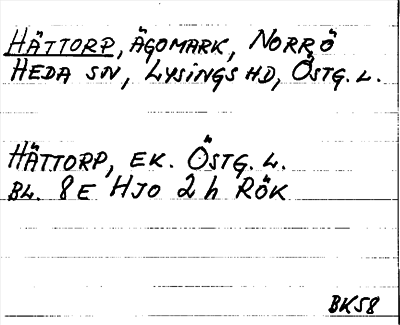 HÄTTORP, ÄGOMARK, NORRÖ
HEDA SN, LYSINGS HD, ÖSTG. L.
HÄTTORP, EK. ÖSTG. L.
BL. 8E HJO 2h RÖK
BK58